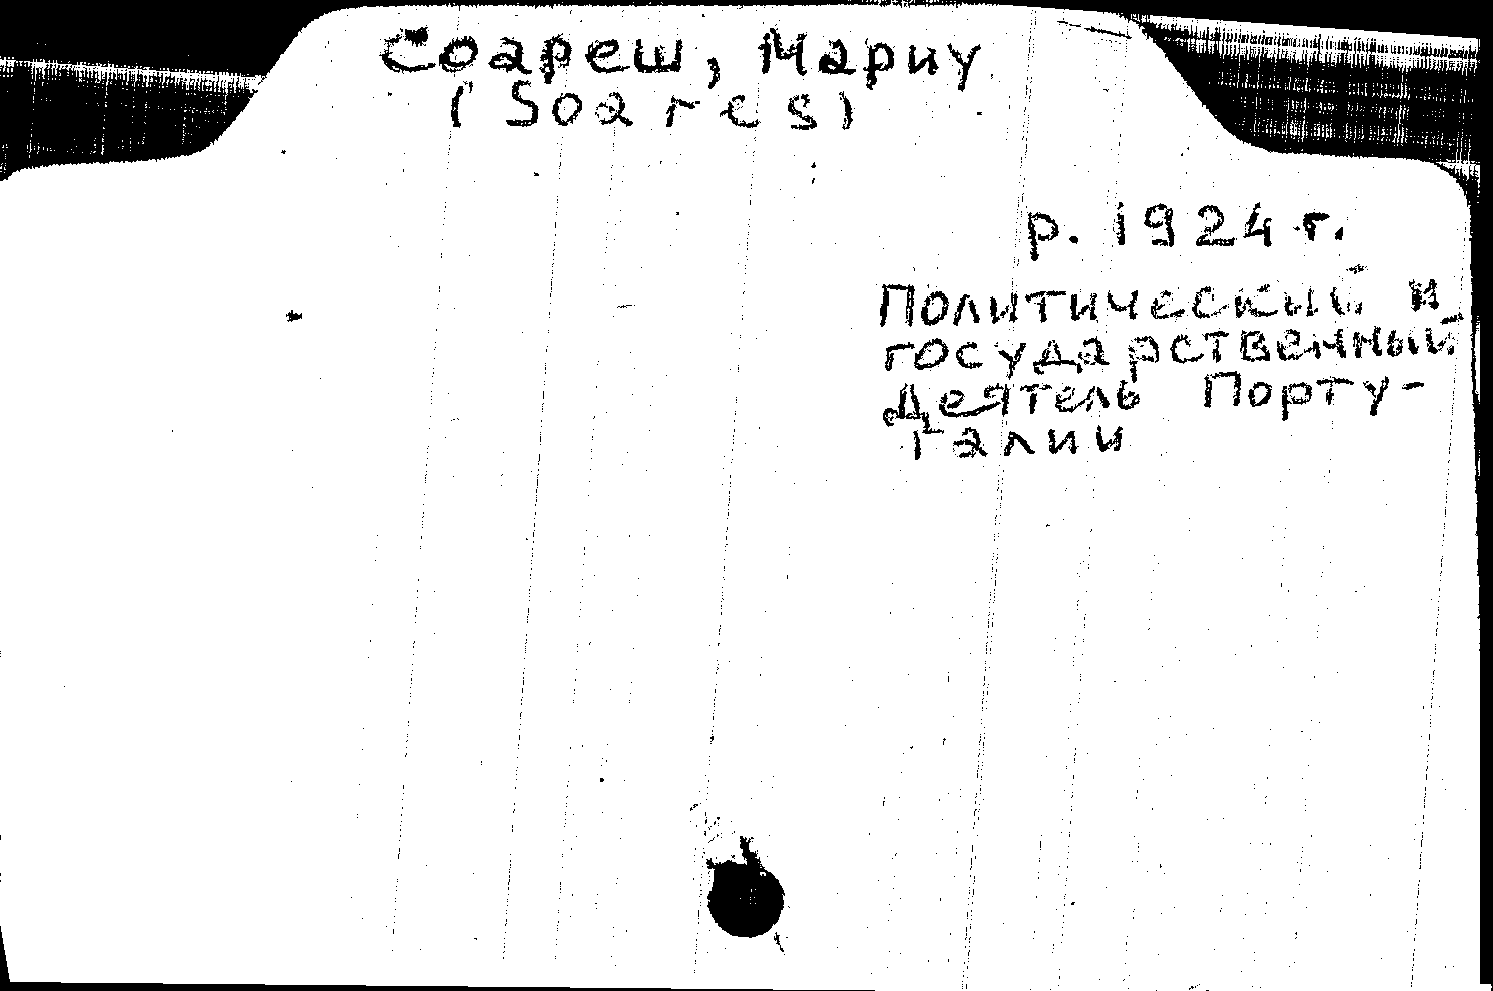 Соареш, Мариу
(Soares)
р. 1924 г.
Политический и
государственный
деятель Порту-
галии